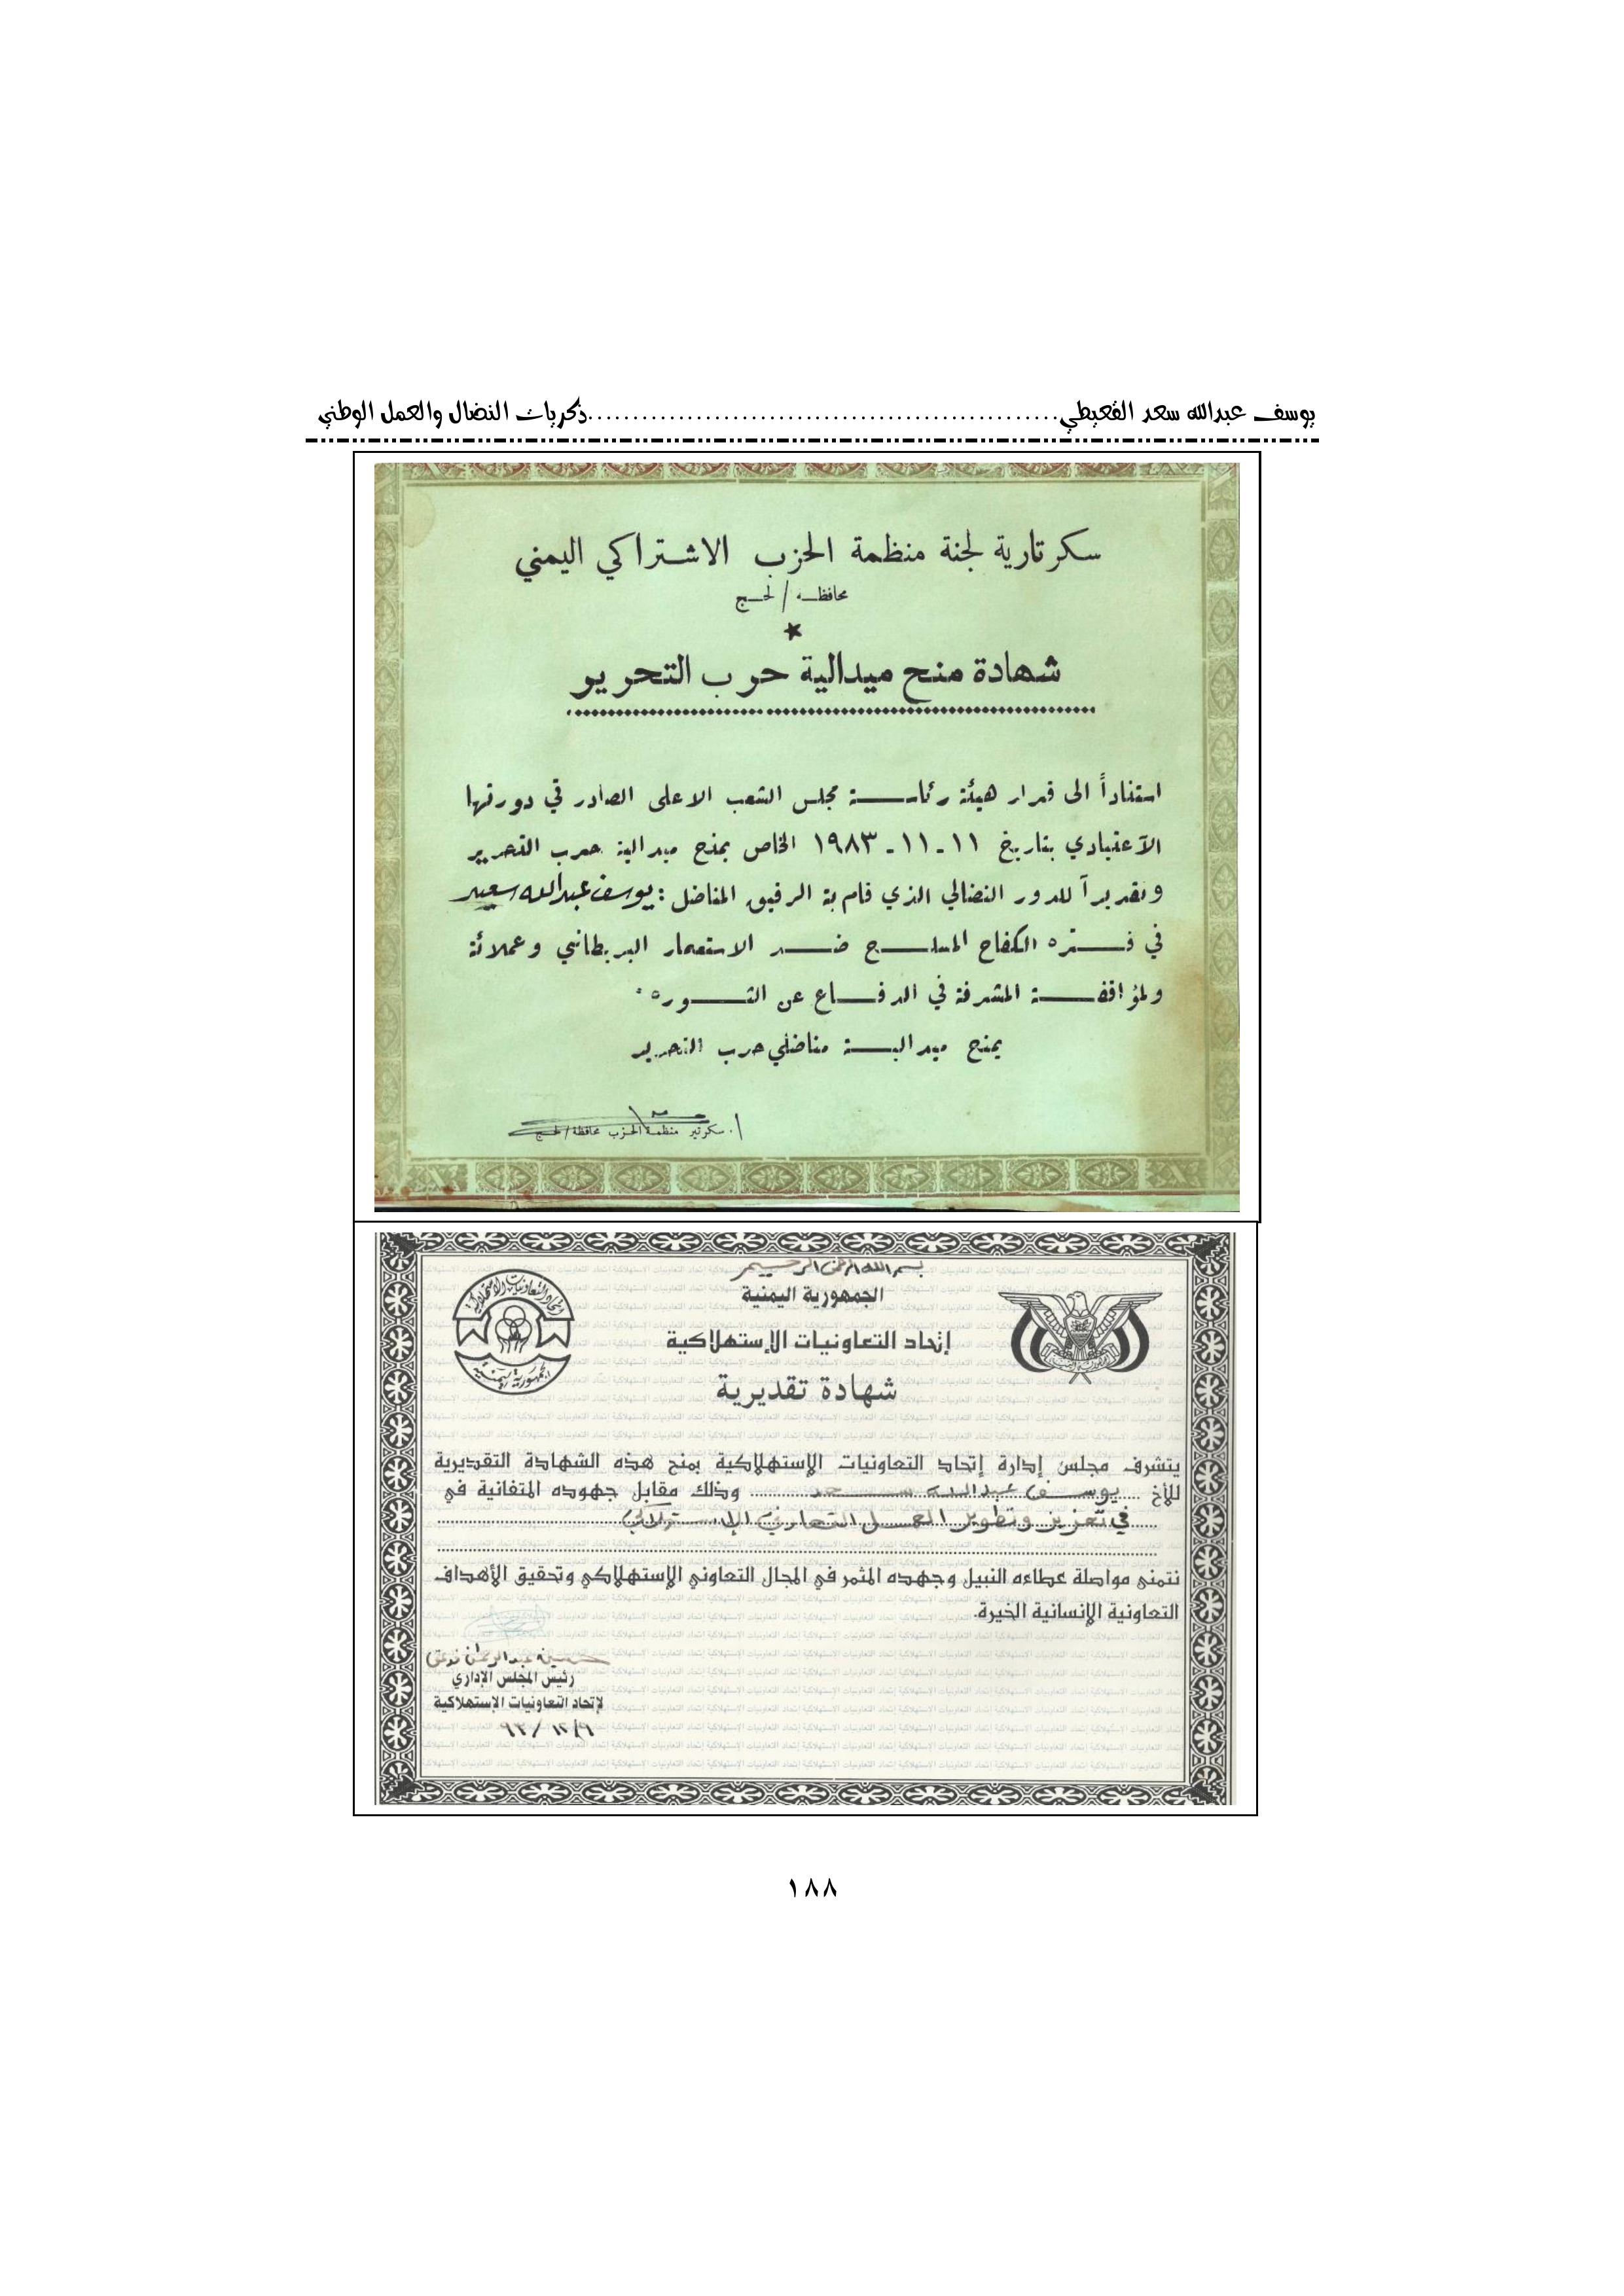 يوسف عبدالله سعد القعيطي................................................ذكريات النضال والعمل الوطني
سكرتارية لجنة منظمة الحزب الاشتراكي اليمني
محافظه / لحج
شهادة منح ميدالية حرب التحرير
استناداً الى قرار هيئة رئاسة مجلس الشعب الاعلى الصادر في دورتها
الآعتيادي بتاريخ ١١-١١-١٩٨٣ الخاص بمنح ميدالية حرب التحرير
وتقديرآ للدور النضالي الذي قام بة الرفيق المناضل : يوسف عبدالله سعيد
في فتره الكفاح المسلح ضد الاستعمار البريطاني وعملائة
ولمؤاقفة المشرفة في الدفاع عن الثوره .
يمنح ميدالية مناضلي حرب التحرير
ا. سكرتير منظمة الحزب محافظة / لحج
بسم الله الرحمن الرحيم
الجمهورية اليمنية
إتحاد التعاونيات الإستهلاكية
إتحاد التعاونيات الاستهلاكية
الجمهورية اليمنية
شهادة تقديرية
يتشرف مجلس إدارة إتحاد التعاونيات الإستهلاكية بمنح هذه الشهادة التقديرية
للأخ ... يوسف عبدالله سعد ... وذلك مقابل جهوده المتفانية في
في تعزيز وتطوير العمل التعاوني الإستهلاكي
نتمنى مواصلة عطاءه النبيل وجهده المثمر في المجال التعاوني الإستهلاكي وتحقيق الأهداف
التعاونية الإنسانية الخيرة.
حسين عبدالرحمن
رئيس المجلس الإداري
لإتحاد التعاونيات الإستهلاكية
٩/١٢/٩٣
١٨٨